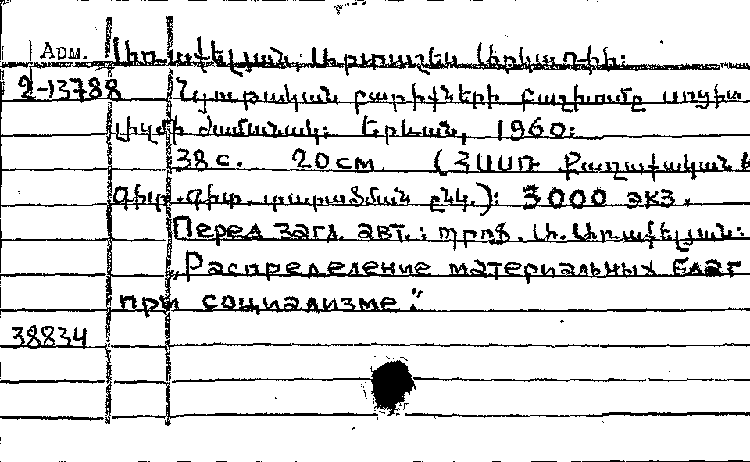 Арм. Առաքելյան, Արտաշես Արկադիի:
2-13788 Նյութական բարիքների բաշխումը սոցիա
լիզմի ժամանակ: Երևան, 1960:
38 с. 20 см (ՀՍՍՌ Քաղաքական և
գիտ. գիտ. տարածման ընկ.): 3000 экз.
Перед загл. авт.: պրոֆ. Ա. Առաքելյան:
„Распределение материальных благ
при социализме“
38834